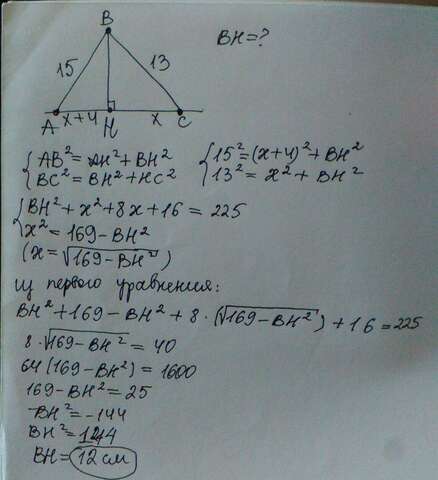 B
BH=?
15
13
A x+4 H x C
{AB²=AH²+BH² {15²=(x+4)²+BH²
{BC²=BH²+HC² {13²=x²+BH²
{BH²+x²+8x+16=225
{x²=169-BH²
(x=√(169-BH²))
из первого уравнения:
BH²+169-BH²+8·(√(169-BH²))+16=225
8·√(169-BH²)=40
64(169-BH²)=1600
169-BH²=25
-BH²=-144
BH²=144
BH=12 см